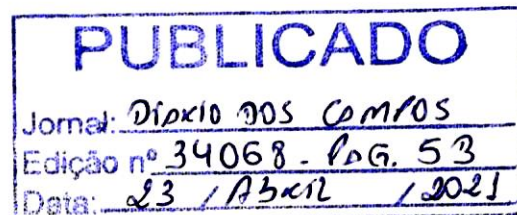 PUBLICADO
Jornal: DIÁRIO DOS CAMPOS
Edição nº 34068 - PAG. 53
Data: 23 / ABRIL / 2021